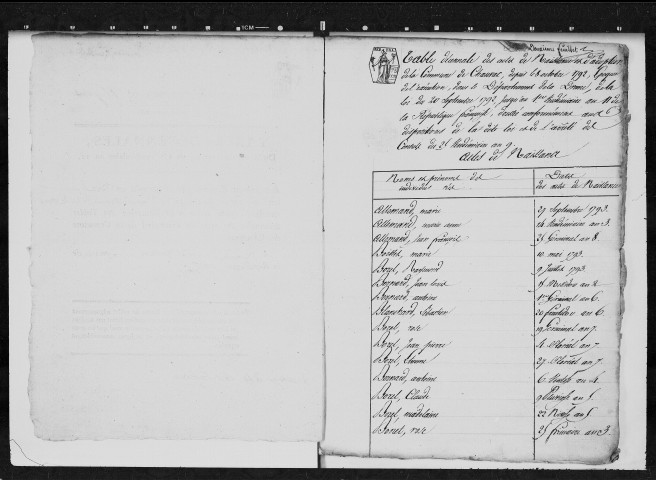 Table décennale des actes de Naissances et d'adoption
de la Commune de depuis octobre 1792, Époque
de dans le Département de la Drôme, de la
loi du 20 Septembre 1792, jusqu'au 1er Vendémiaire an 11 de
la République française, dressée conformément aux
dispositions de la dite loi et de l'arrêté des
Consuls du 25 Vendémiaire an 9.
Actes de Naissance
Noms et prénoms des
individus
Dates
des actes de Naissance
Allemand, marie 27 Septembre 1793.
Allemand, marie anne 14 Vendémiaire an 3.
Allemand, Jean françois 25 Germinal an 8.
marie 10 mai 1793.
Borel, Raymond 9 Juillet 1793
Bernard, Jean louis an 2
Bernard, antoine 1er Germinal an 6.
Blanchard, Sébastien 20 fructidor an 6.
Borel, rose 19 Germinal an 7.
Borel, Jean pierre 4 floréal an 7.
Borel, Etienne 27 floréal an 7.
Bernard, antoine 6 an 4.
Borel, Claude 9 Pluviose an 5.
Borel, madelaine 22 an 5
Borel, rose 25 frimaire an 3